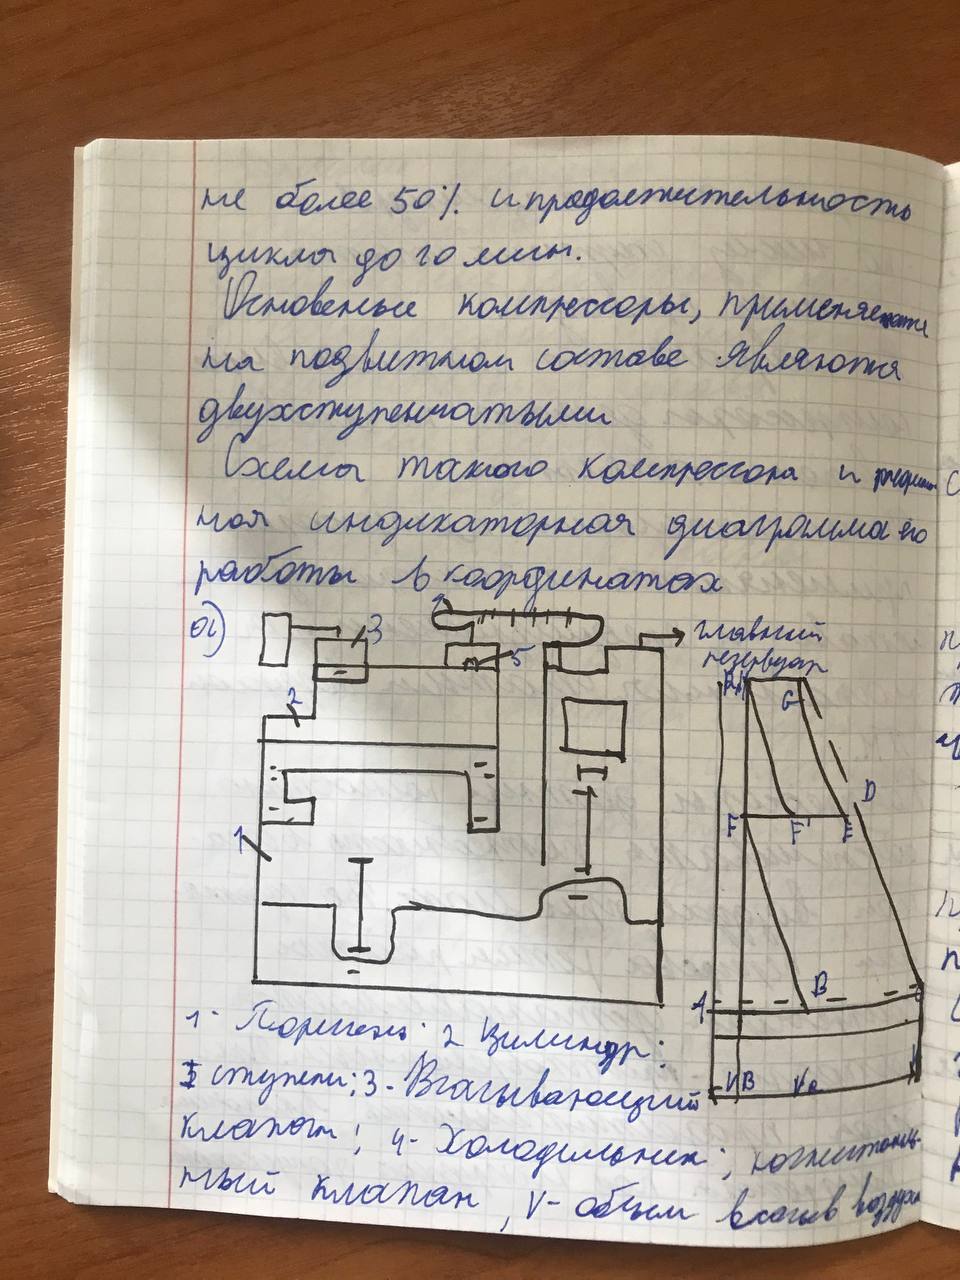 не более 50% и продолжительность
цикла до 10 мин.
Основные компрессоры, применяе
на подвижном составе являются
двухступенчатыми
Схема такого компрессора и
ная индикаторная диаграмма его
работы в координатах
а)
3
5
2
1
главный
резервуар
G
D
F
F'
E
A
B
VB
1- Поршень: 2 Цилиндр:
I ступени; 3- Всасывающий
клапан; 4- Холодильник; нагнетатель-
ный клапан, V- объем всасыв воздуха